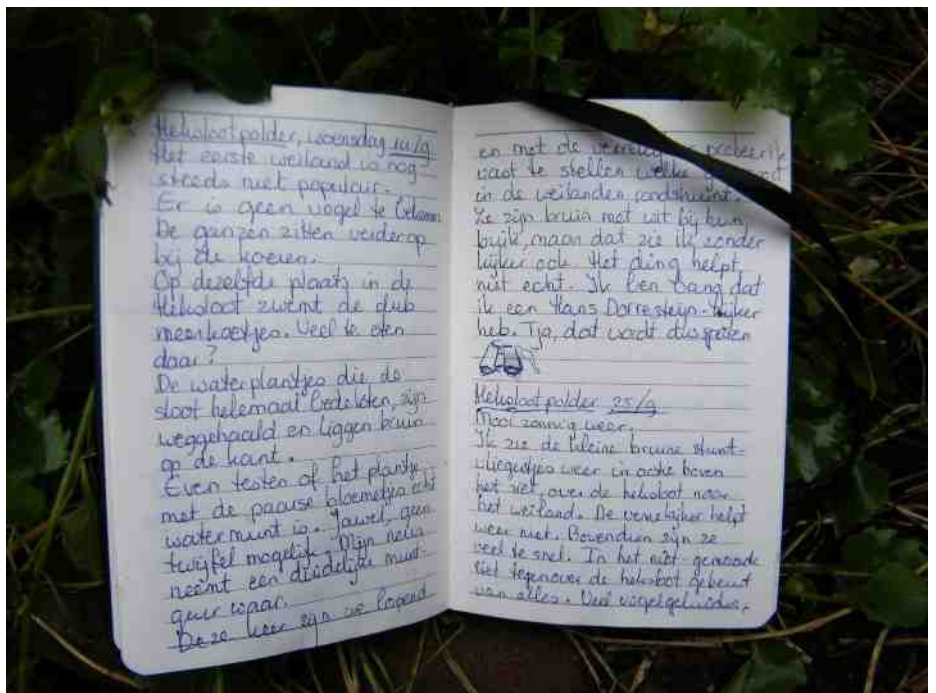 Heksloot polder, woensdag 10/9
Het eerste weiland is nog
steeds niet populair.
Er is geen vogel te bekennen
De ganzen zitten verderop
bij de koeien.
Op dezelfde plaats in de
Heksloot zwemt de club
meerkoetjes. Veel te eten
daar?
De waterplantjes die de
sloot helemaal bedekten, zijn
weggehaald en liggen bruin
op de kant.
Even testen of het plantje
met de paarse bloemetjes echt
watermunt is. Jawel, geen
twijfel mogelijk. Mijn neus
neemt een duidelijke munt-
geur waar.
Deze keer zijn we lopend
en met de verrekijker probeer ik
vast te stellen welke
in de weilanden rondstruint.
Ze zijn bruin met wit bij hun
buik, maar dat zie ik zonder
kijker ook. Het ding helpt
niet echt. Ik ben bang dat
ik een Hans Dorresteijn-kijker
heb. Tja, dat wordt dus sparen
Heksloot polder 25/9
Mooi zonnig weer.
Ik zie de kleine bruine stunt-
vliegertjes weer in actie boven
het riet, over de heksloot naar
het weiland. De verrekijker helpt
weer niet. Bovendien zijn ze
veel te snel. In het niet-gemaaide
riet tegenover de heksloot gebeurt
van alles. Veel vogelgeluiden,